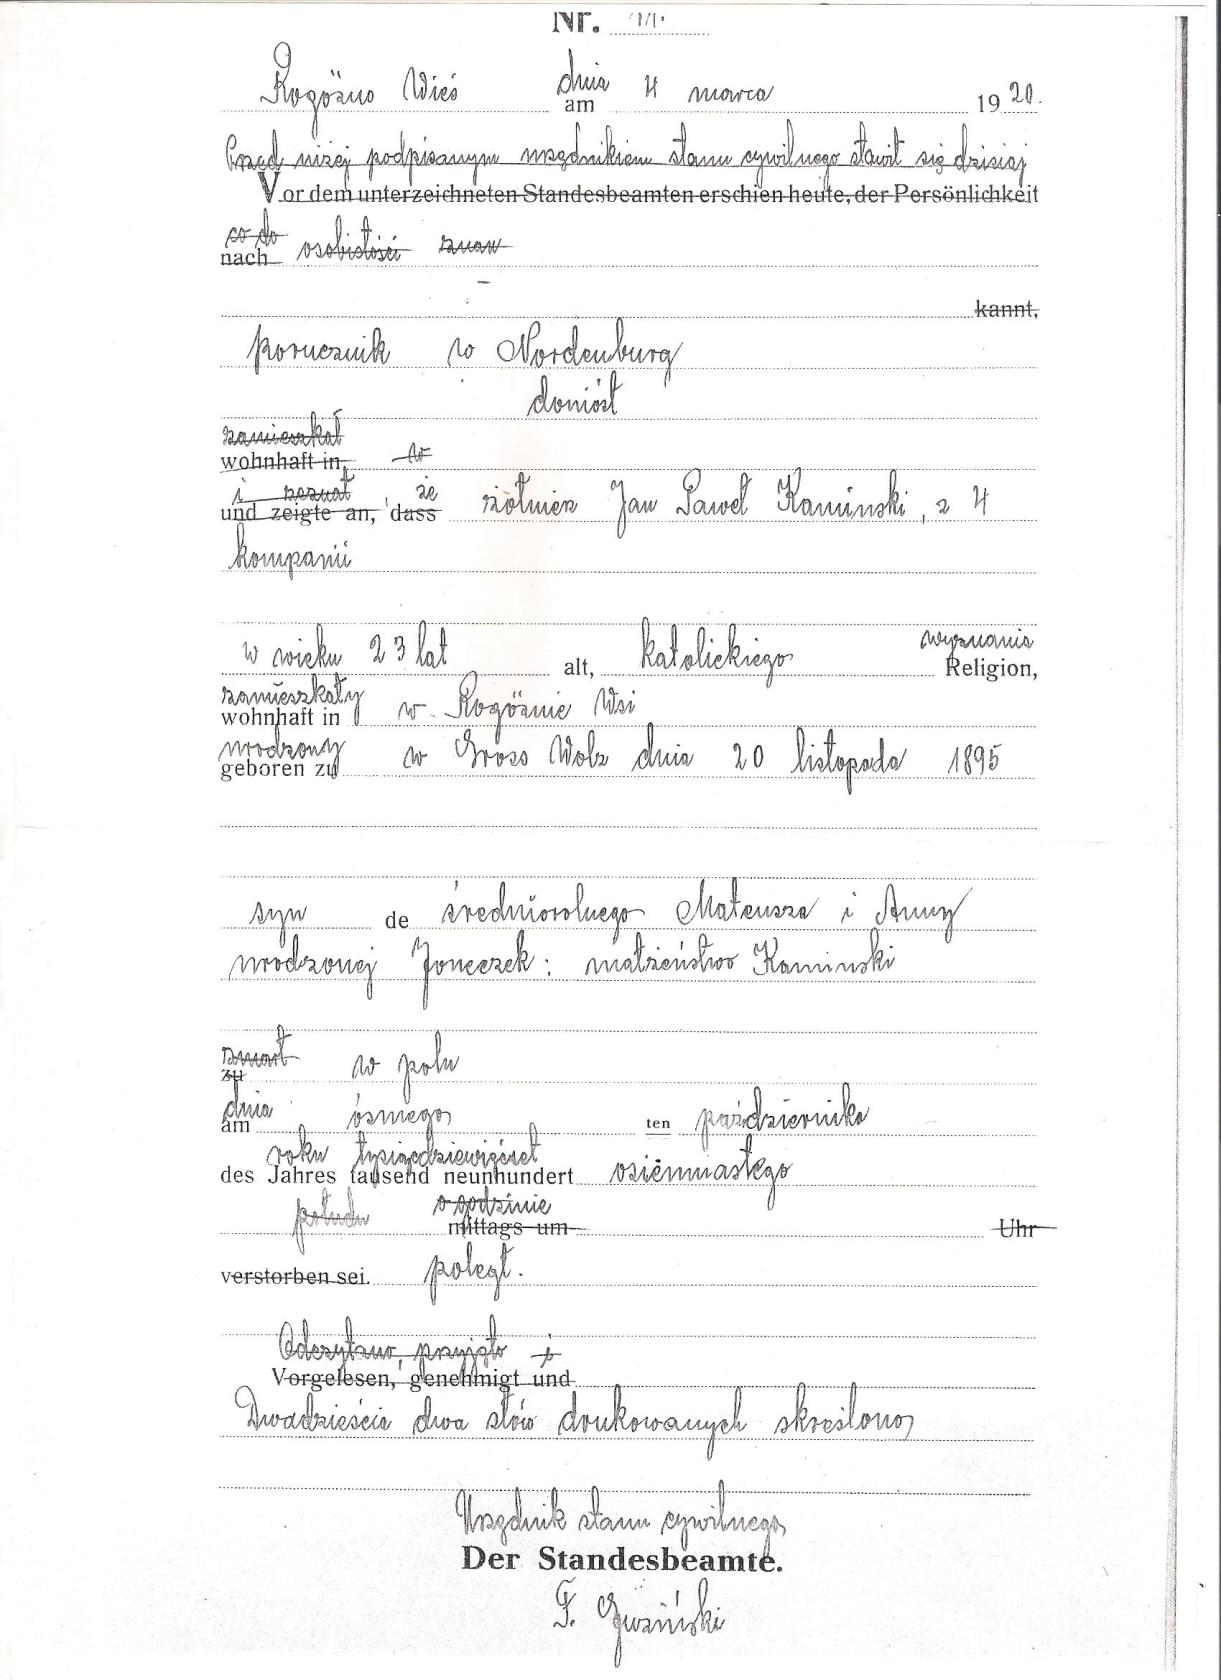 Nr.
Rogóźno Wieś dnia 4 marca 1920.
am
Przed niżej podpisanym urzędnikiem stanu cywilnego stawił się dzisiaj
Vor dem unterzeichneten Standesbeamten erschien heute, der Persönlichkeit
co do osobistości znan
nach
kannt,
porucznik w Nordenburg
doniósł
zamieszkał w
wohnhaft in
i zeznał, że żołnierz Jan Paweł Kaminski, z 4
und zeigte an, dass
kompanii
w wieku 23 lat alt, katolickiego wyznania
Religion,
zamieszkały w Rogóźnie Wsi
wohnhaft in
urodzony w Gross Wolz dnia 20 listopada 1895
geboren zu
syn de średniorolnego Mateusza i Anny
urodzonej Jonczek: małżeństwo Kaminski
zmarł w polu
zu
dnia ósmego października
am ten
roku tysiącdziewięćset osiemnastego
des Jahres tausend neunhundert
połudn o godzinie
mittags um Uhr
verstorben sei. poległ.
Odczytano, przyjęto i
Vorgelesen, genehmigt und
Dwadzieścia dwa słów drukowanych skreślono,
Urzędnik stanu cywilnego
Der Standesbeamte.
F.